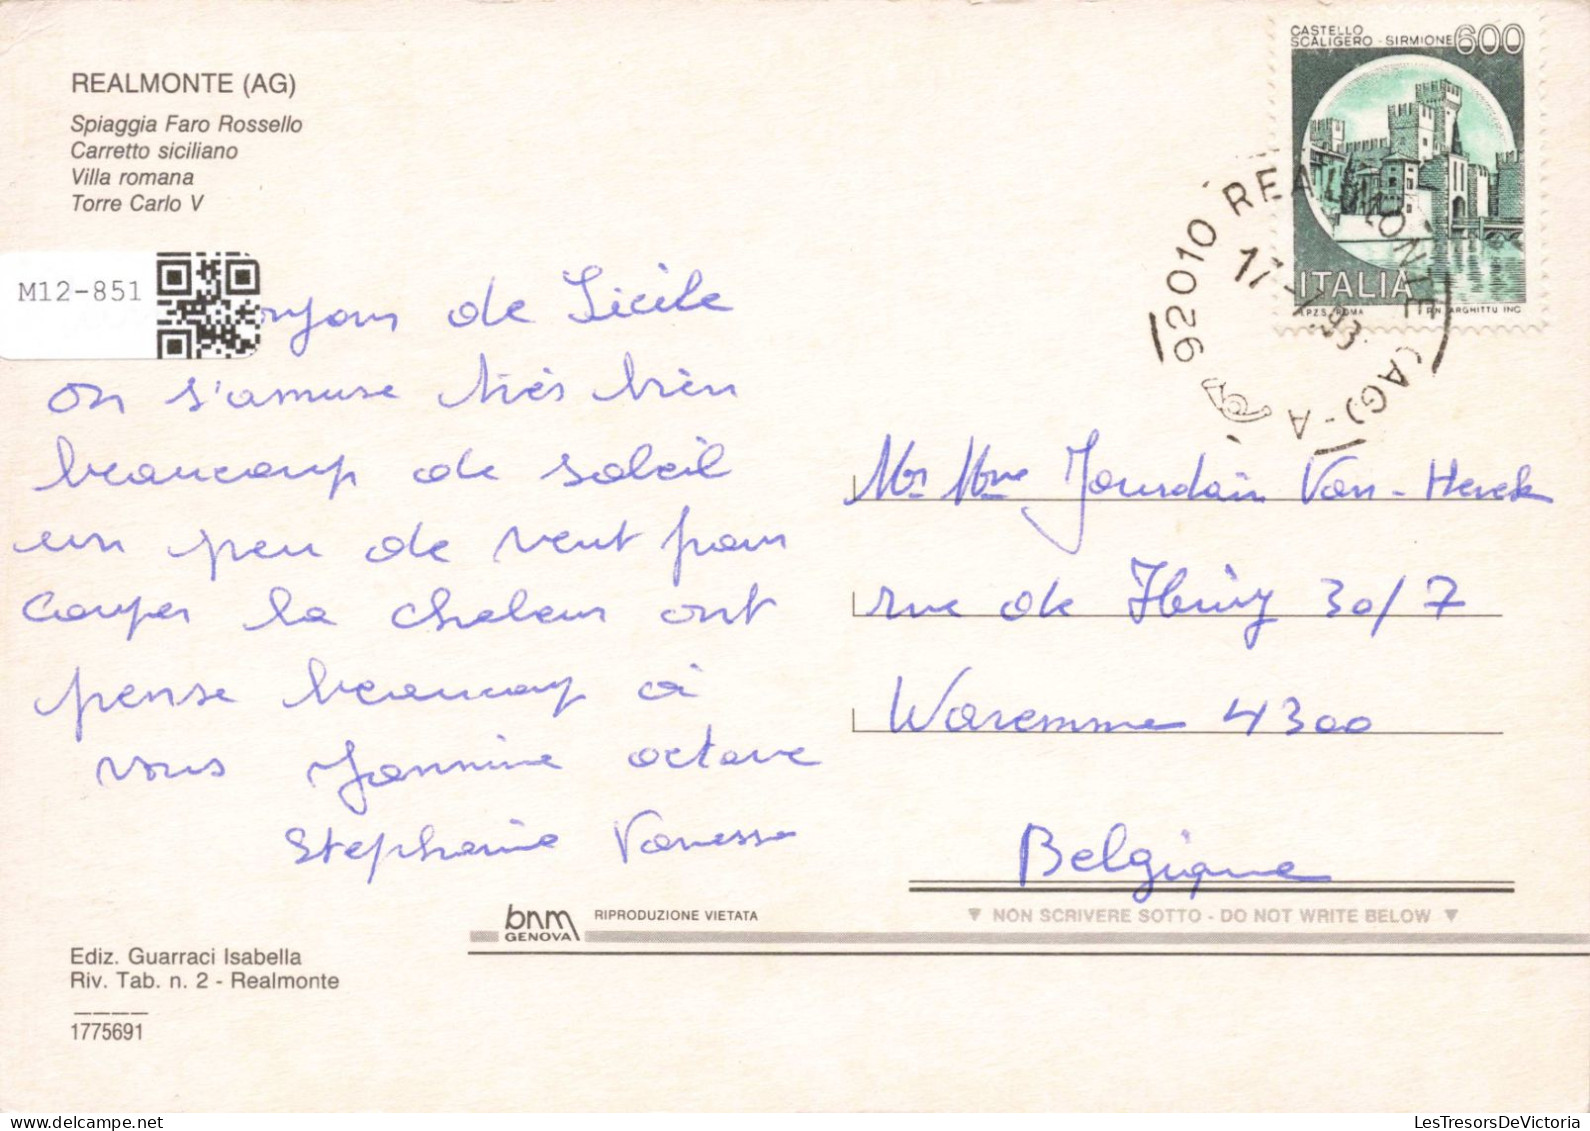 CASTELLO
SCALIGERO - SIRMIONE 600
ITALIA
I.P.Z.S. ROMA
ARGHITTU INC
REALMONTE (AG)
Spiaggia Faro Rossello
Carretto siciliano
Villa romana
Torre Carlo V
92010 REALMONTE (AG) - A
17-7.93
M12-851
de Sicile
on s'amuse très bien
beaucoup de soleil
un peu de vent pour
couper la chaleur ont
pense beaucoup à
vous Jannine octave
Stephanie Vanessa
Mr Mme Jourdain Van-Herck
rue de 30/7
Waremme 4300
Belgique
bnm
GENOVA
RIPRODUZIONE VIETATA
▼ NON SCRIVERE SOTTO - DO NOT WRITE BELOW ▼
Ediz. Guarraci Isabella
Riv. Tab. n. 2 - Realmonte
1775691
LesTresorsDeVictoria